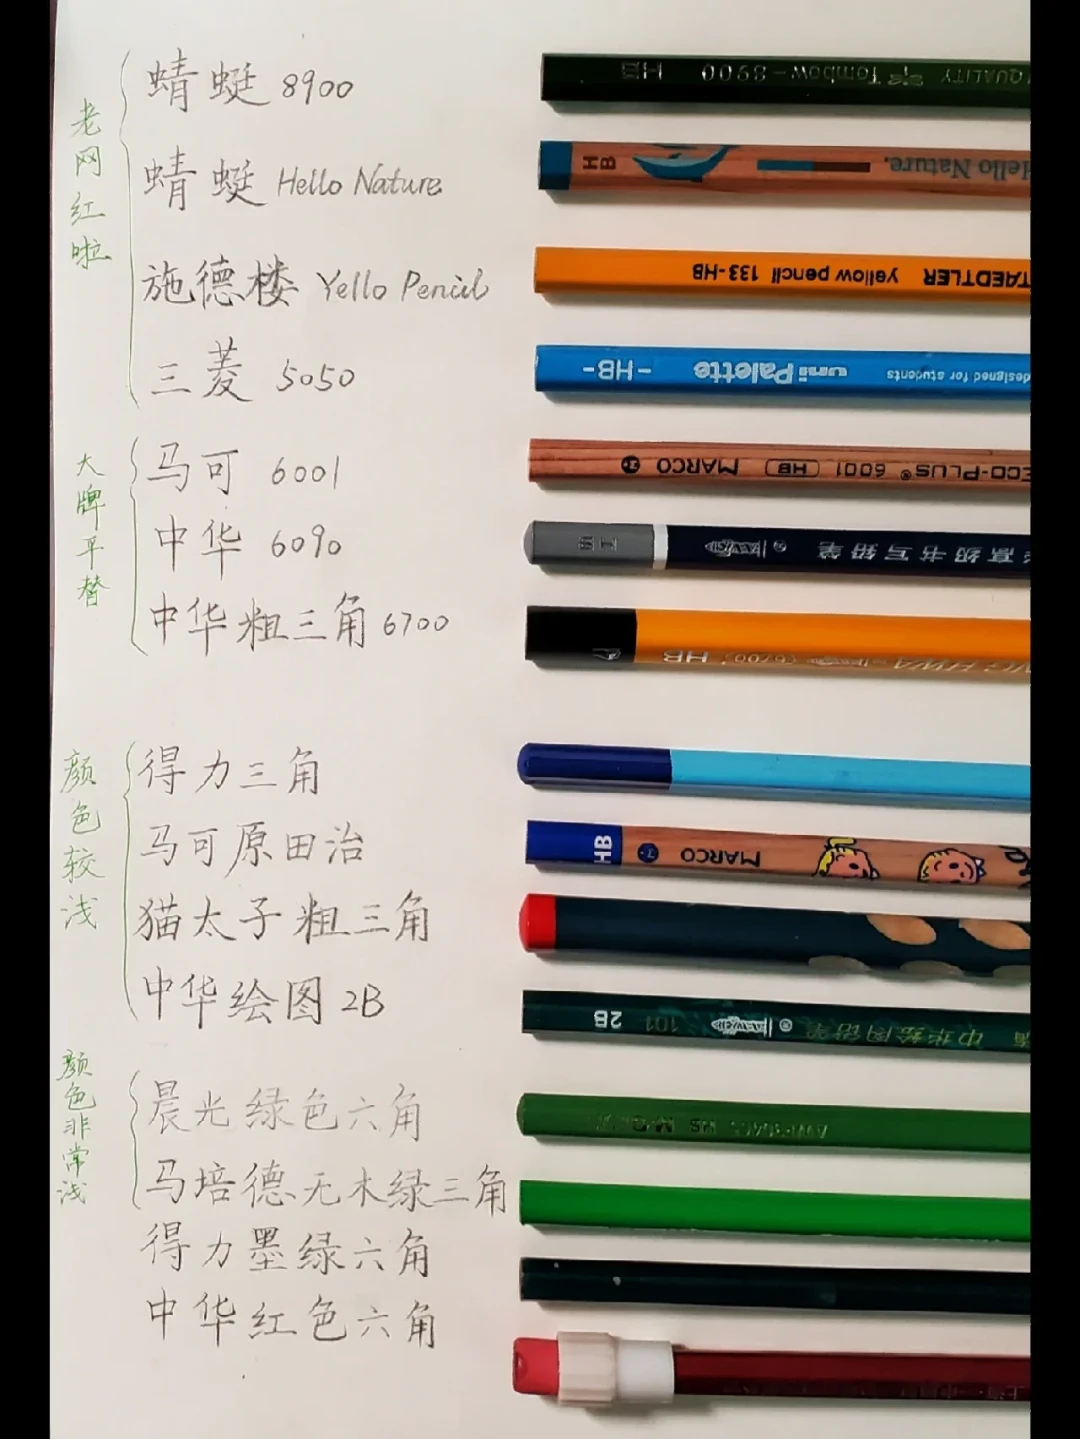 老网红啦
蜻蜓 8900
蜻蜓 Hello Nature
施德楼 Yello Pencil
三菱 5050
大牌平替
马可 6001
中华 6090
中华粗三角 6700
颜色较浅
得力三角
马可原田治
猫太子粗三角
中华绘图 2B
颜色非常浅
晨光绿色六角
马培德无木绿三角
得力墨绿六角
中华红色六角
QUALITY Tombow-8900 HB
Hello Nature. HB
STAEDTLER yellow pencil 133-HB
designed for students uni Palette -HB-
ECO-PLUS® 6001 HB MARCO
高级书写铅笔
6700 HB
HB MARCO
中华绘图铅笔 101 2B